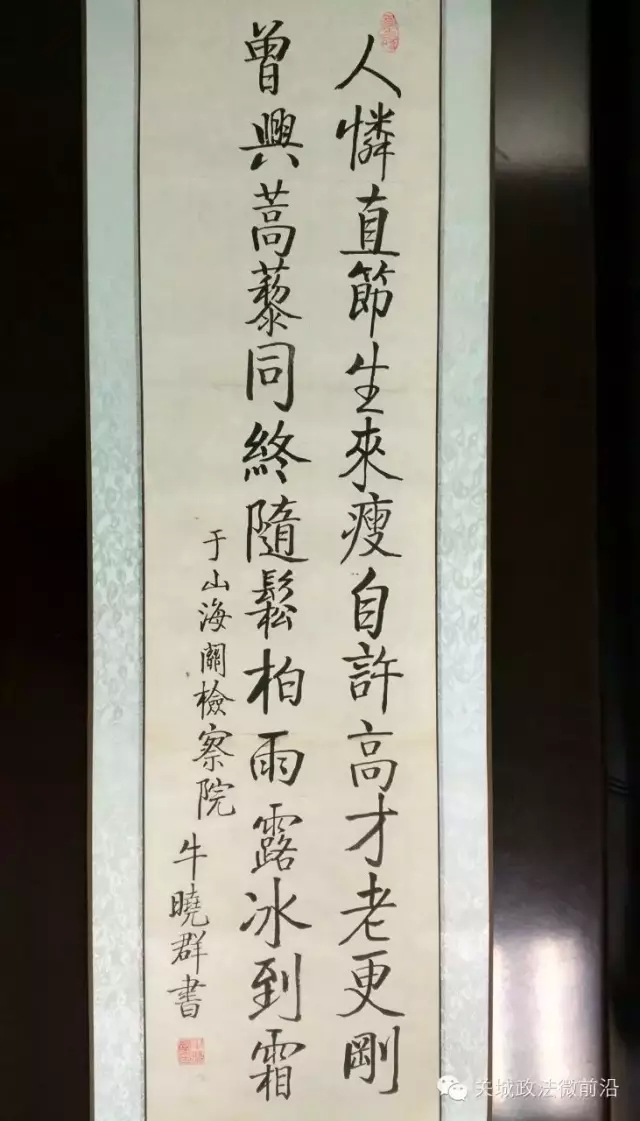 人憐直節生來瘦自許高才老更剛
曾興蒿藜同終隨鬆柏雨露冰到霜
于山海關檢察院
牛曉群書
关城政法微前沿